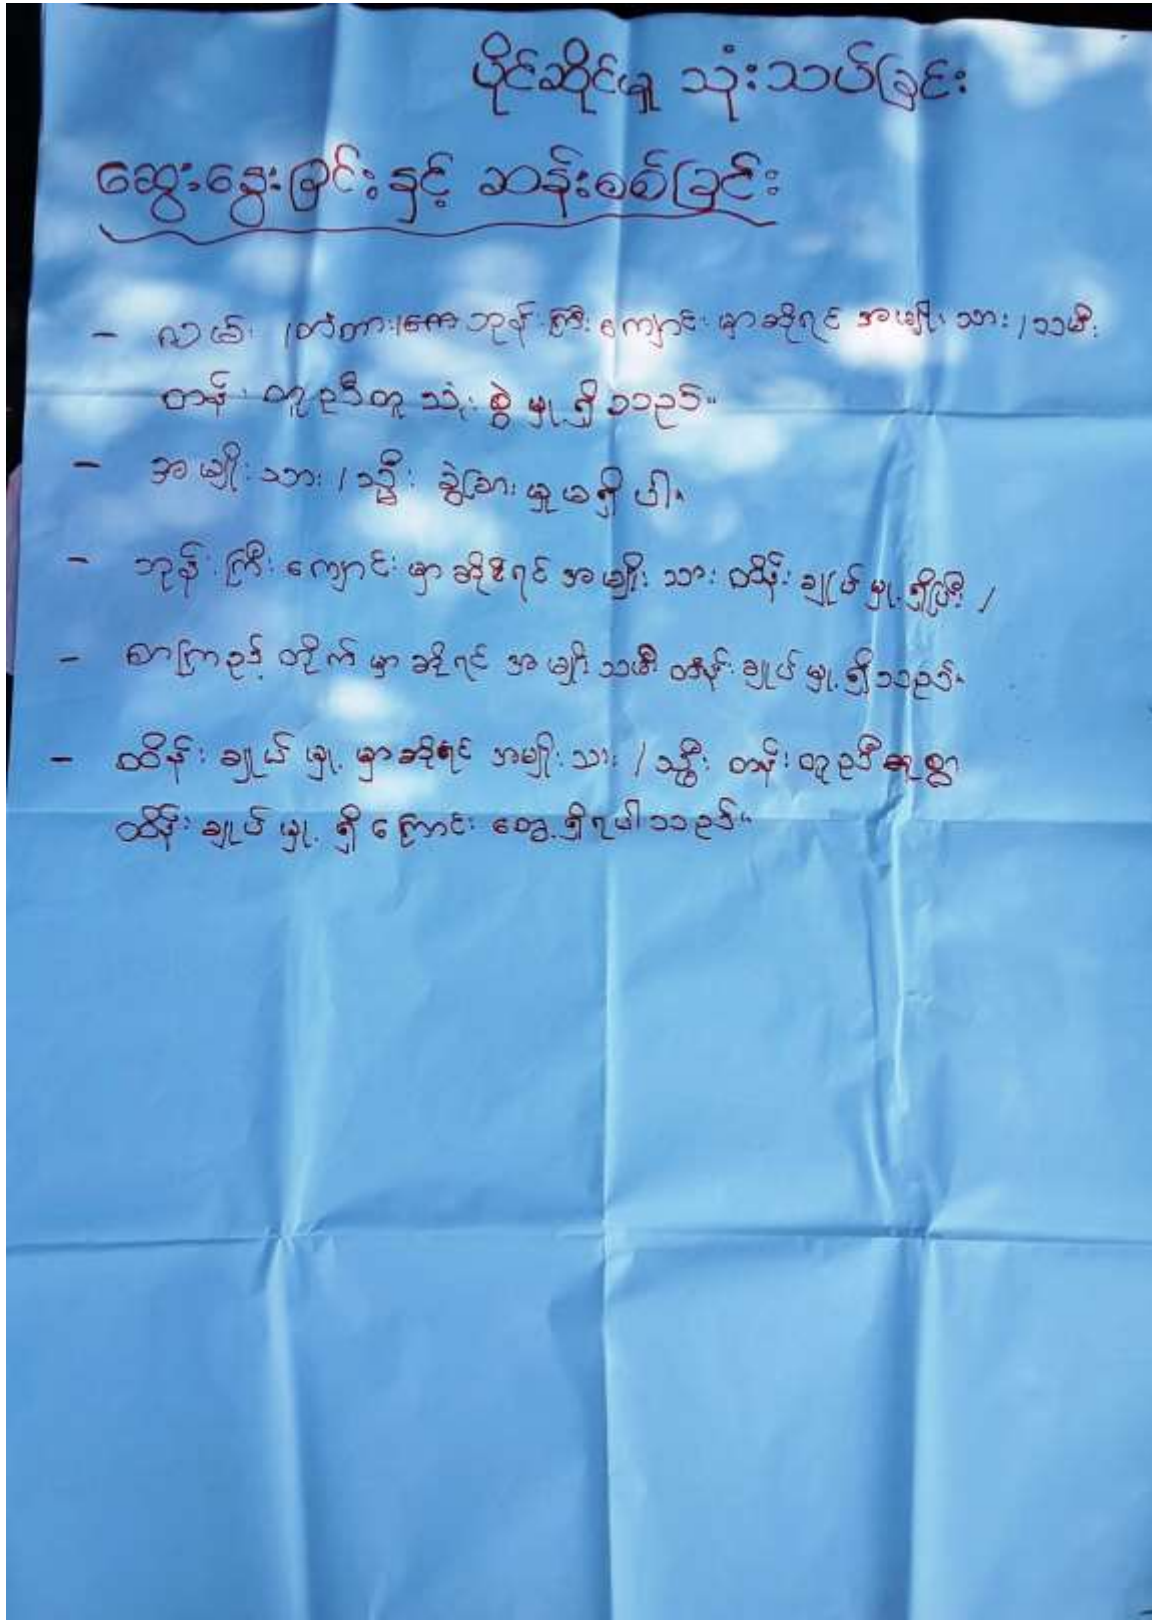 ပိုင်ဆိုင်မှု သုံးသပ်ခြင်း
ဆွေးနွေးခြင်းနှင့် ဆန်းစစ်ခြင်း
- လမ်း /တံတား/ ဘုန်းကြီးကျောင်းမှာဆိုရင် အမျိုးသား/သမီး
တန်းတူညီတူ သုံးစွဲမှု့ရှိသည်။
- အမျိုးသား/သ္မီး ခွဲခြားမှုမရှိပါ။
- ဘုန်းကြီးကျောင်းမှာဆိုရင် အမျိုးသား ထိန်းချုပ်မှု့ရှိပြီး /
- စာကြည့်တိုက်မှာဆိုရင် အမျိုးသမီး ထိန်းချုပ်မှု့ရှိသည်။
- ထိန်းချုပ်မှု့မှာဆိုရင် အမျိုးသား/သ္မီး တန်းတူညီတူစွာ
ထိန်းချုပ်မှု့ရှိကြောင်း တွေ့ရှိရပါသည်။